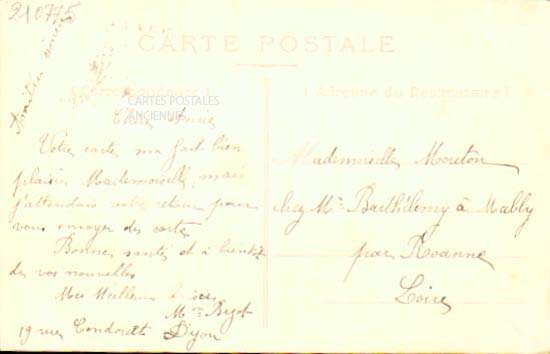 210775
CARTE POSTALE
Correspondance
Adresse du Destinataire
CARTES POSTALES
ANCIENNES
Chère Amie
Votre carte ma fait bien
plaisir Mademoiselle, mais
j'attendais votre retour pour
vous envoyer des cartes
Bonne santé et à bientôt
de vos nouvelles
Mes Meilleurs
Mme Bigot
19 rue Condorcet Dijon
Mademoiselle Mouton
chez Mr Barthélemy à Mably
par Roanne
Loire